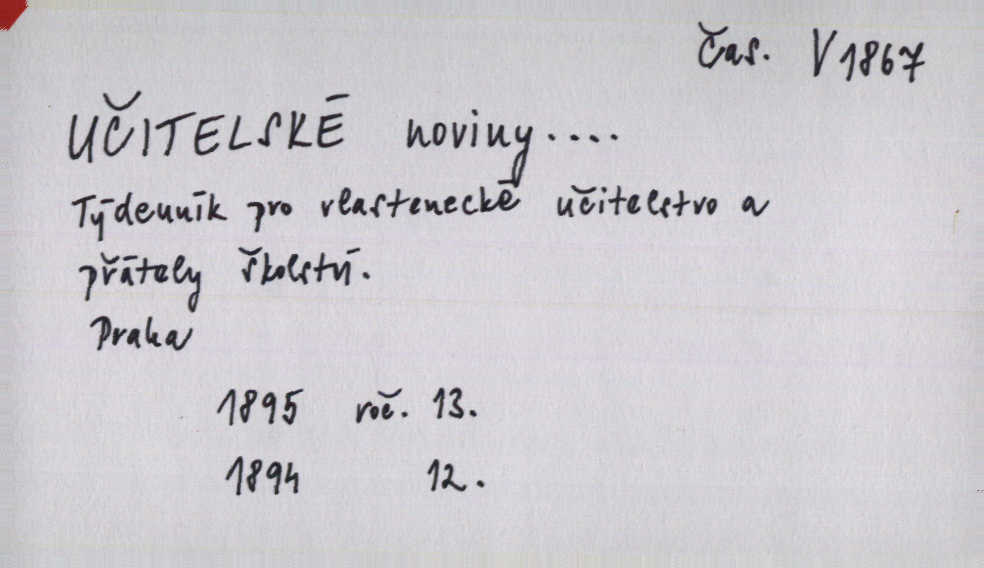 Čas. V 1867
UČITELSKÉ noviny....
Týdenník pro vlastenecké učitelstvo a
přátely školství.
Praha
1895 roč. 13.
1894 12.